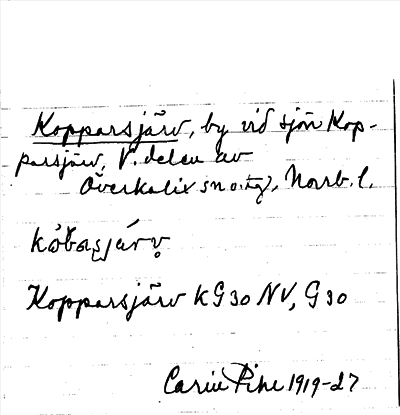 Kopparsjärv, by vid sjön Kop-
parsjärv, V. delen av
Överkalix sn o. tg, Norrb. l.
Kopparsjärv KG30 NV, G30
Carin Pihl 1919-27